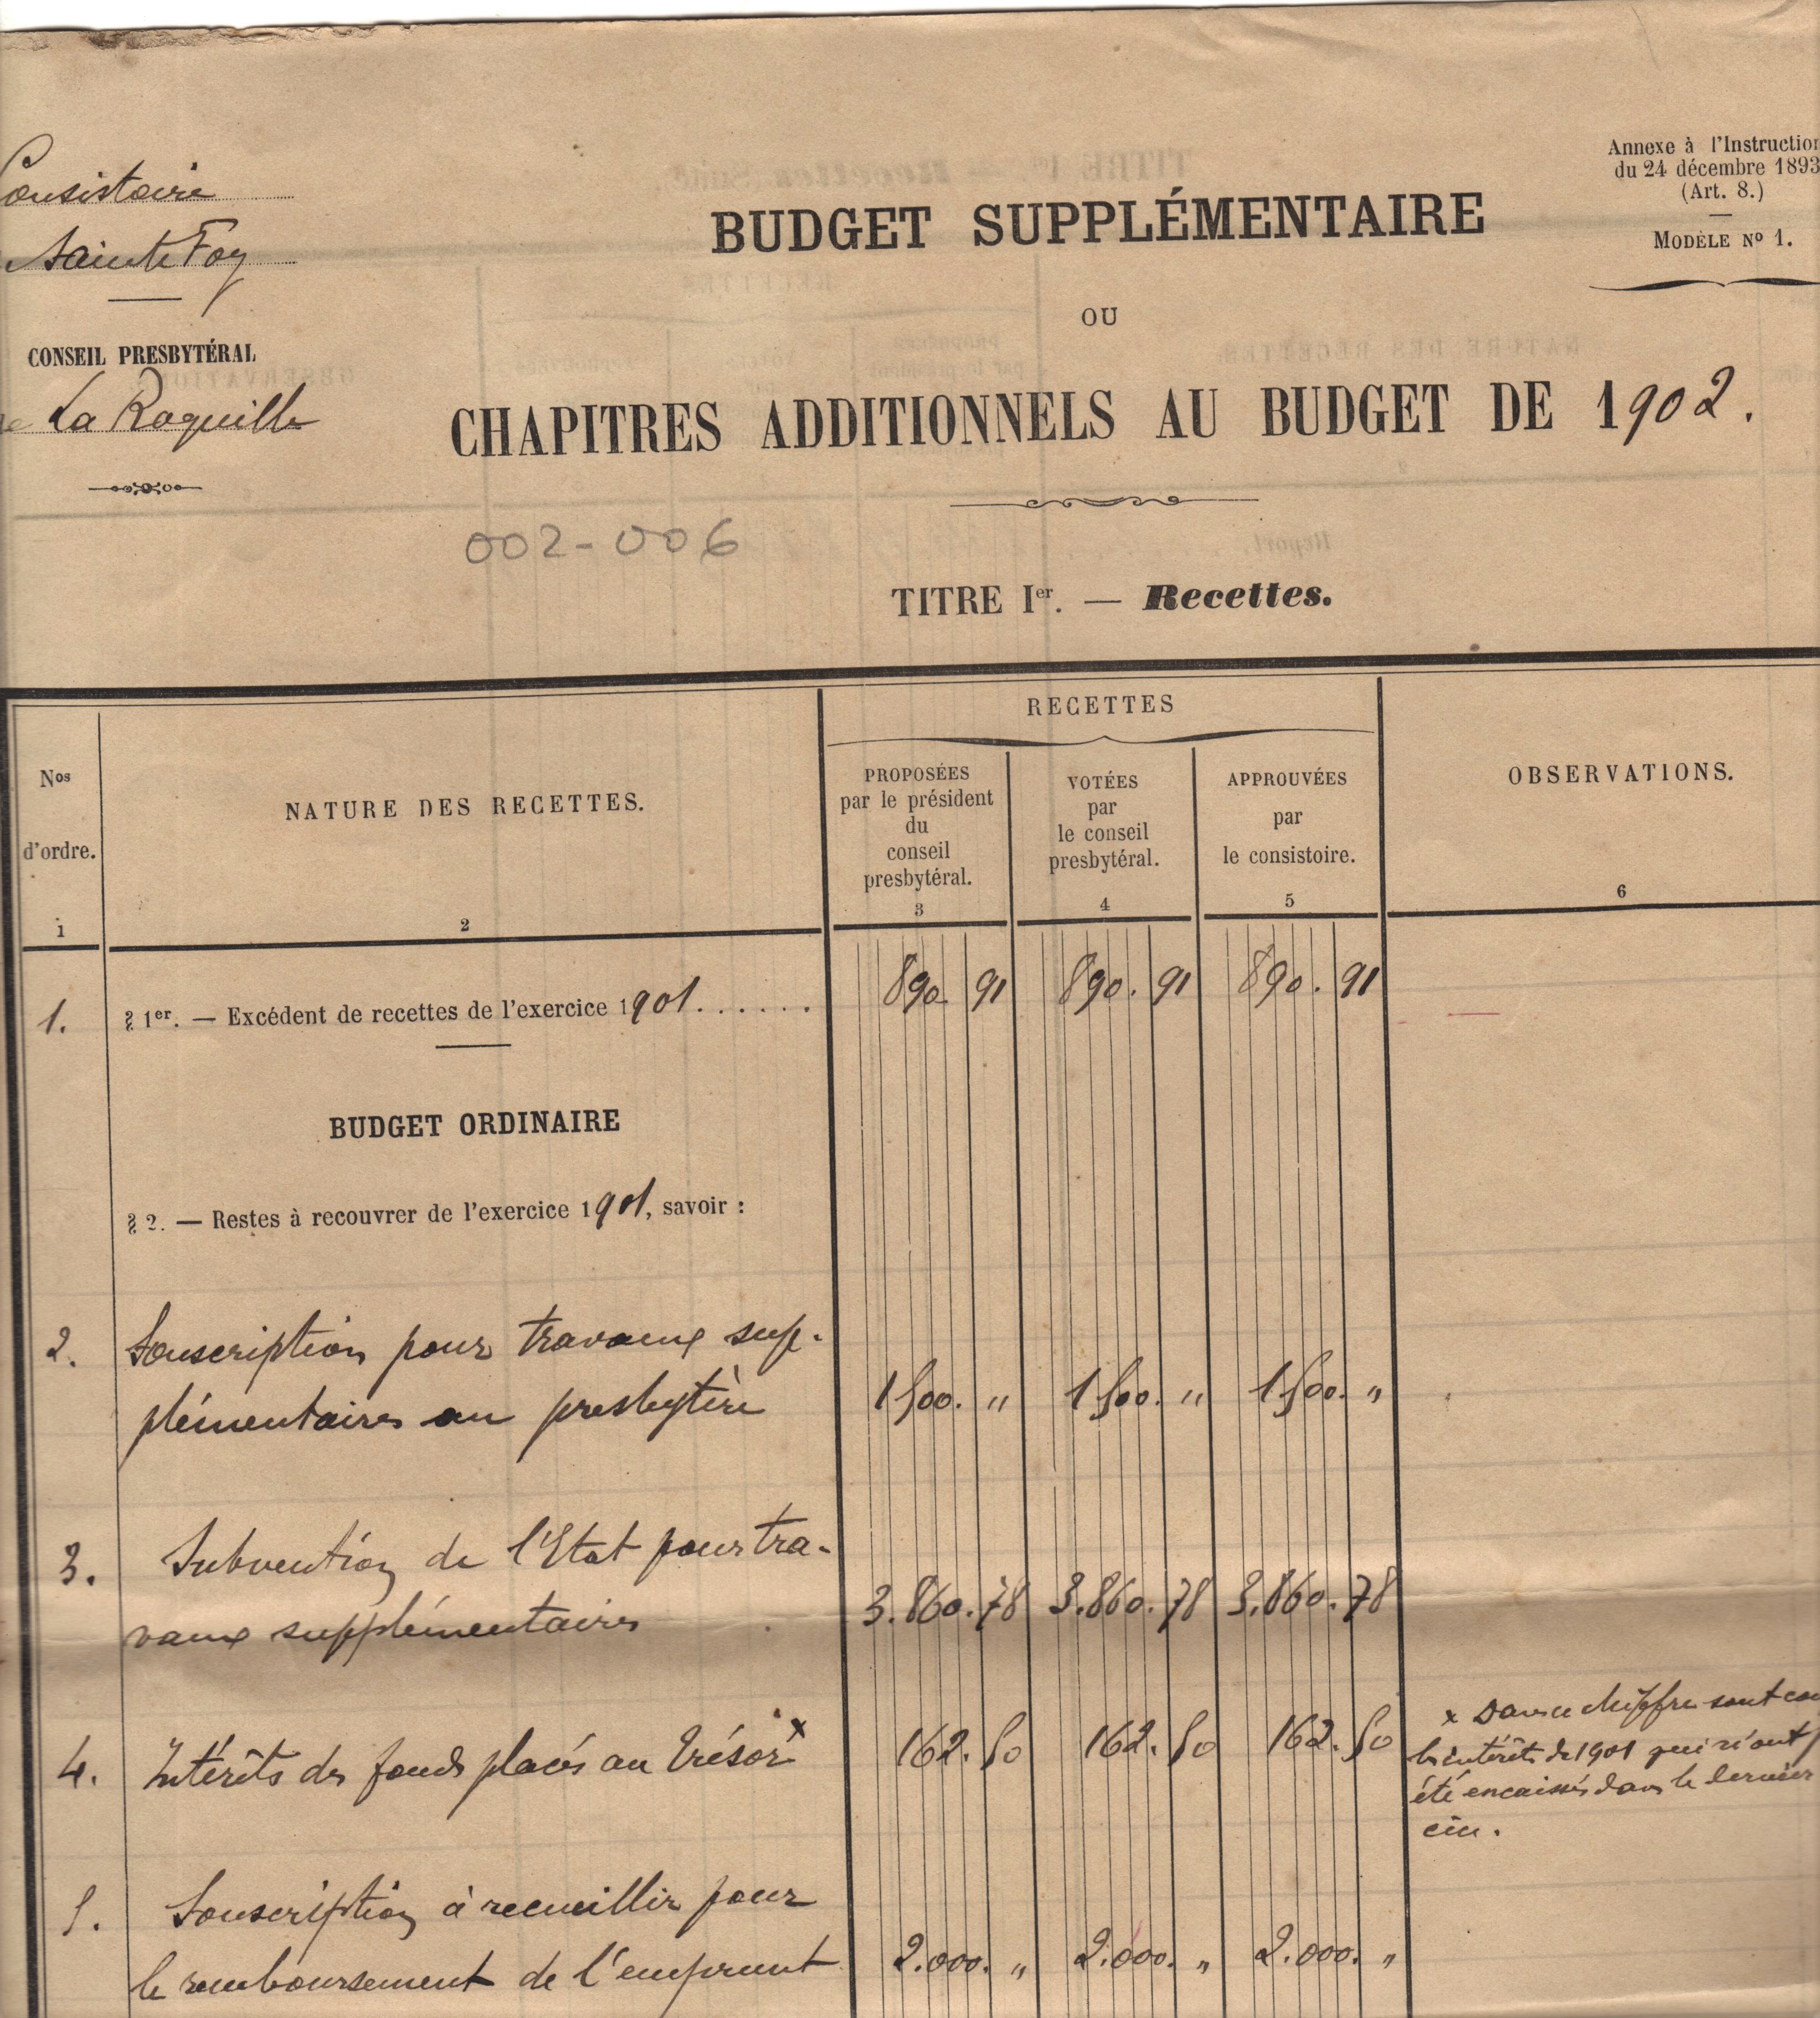 Consistoire
Sainte Foy
CONSEIL PRESBYTÉRAL
La Roquille
BUDGET SUPPLÉMENTAIRE
OU
CHAPITRES ADDITIONNELS AU BUDGET DE 1902.
Annexe à l'Instruction
du 24 décembre 1893
(Art. 8.)
MODÈLE Nº 1.
002-006
TITRE Ier. — Recettes.
Nos
d'ordre.
1
NATURE DES RECETTES.
2
RECETTES
PROPOSÉES
par le président
du
conseil
presbytéral.
3
VOTÉES
par
le conseil
presbytéral.
4
APPROUVÉES
par
le consistoire.
5
OBSERVATIONS.
6
1. § 1er. — Excédent de recettes de l'exercice 1901....... 890. 91 890. 91 890. 91
BUDGET ORDINAIRE
§ 2. — Restes à recouvrer de l'exercice 1901, savoir :
2. Souscription pour travaux sup-
plémentaires au presbytère 1500. " 1500. " 1500. "
3. Subvention de l'Etat pour tra-
vaux supplémentaires 3.860. 78 3.860. 78 3.860. 78
4. Intérêts des fonds placés au Trésor x 162. 50 162. 50 162. 50
x Dans ce chiffre sont
les intérêts de 1901 qui n'ont
été encaissés dans le dernier
5. Souscription à recueillir pour
le remboursement de l'emprunt 2.000. " 2.000. " 2.000. "